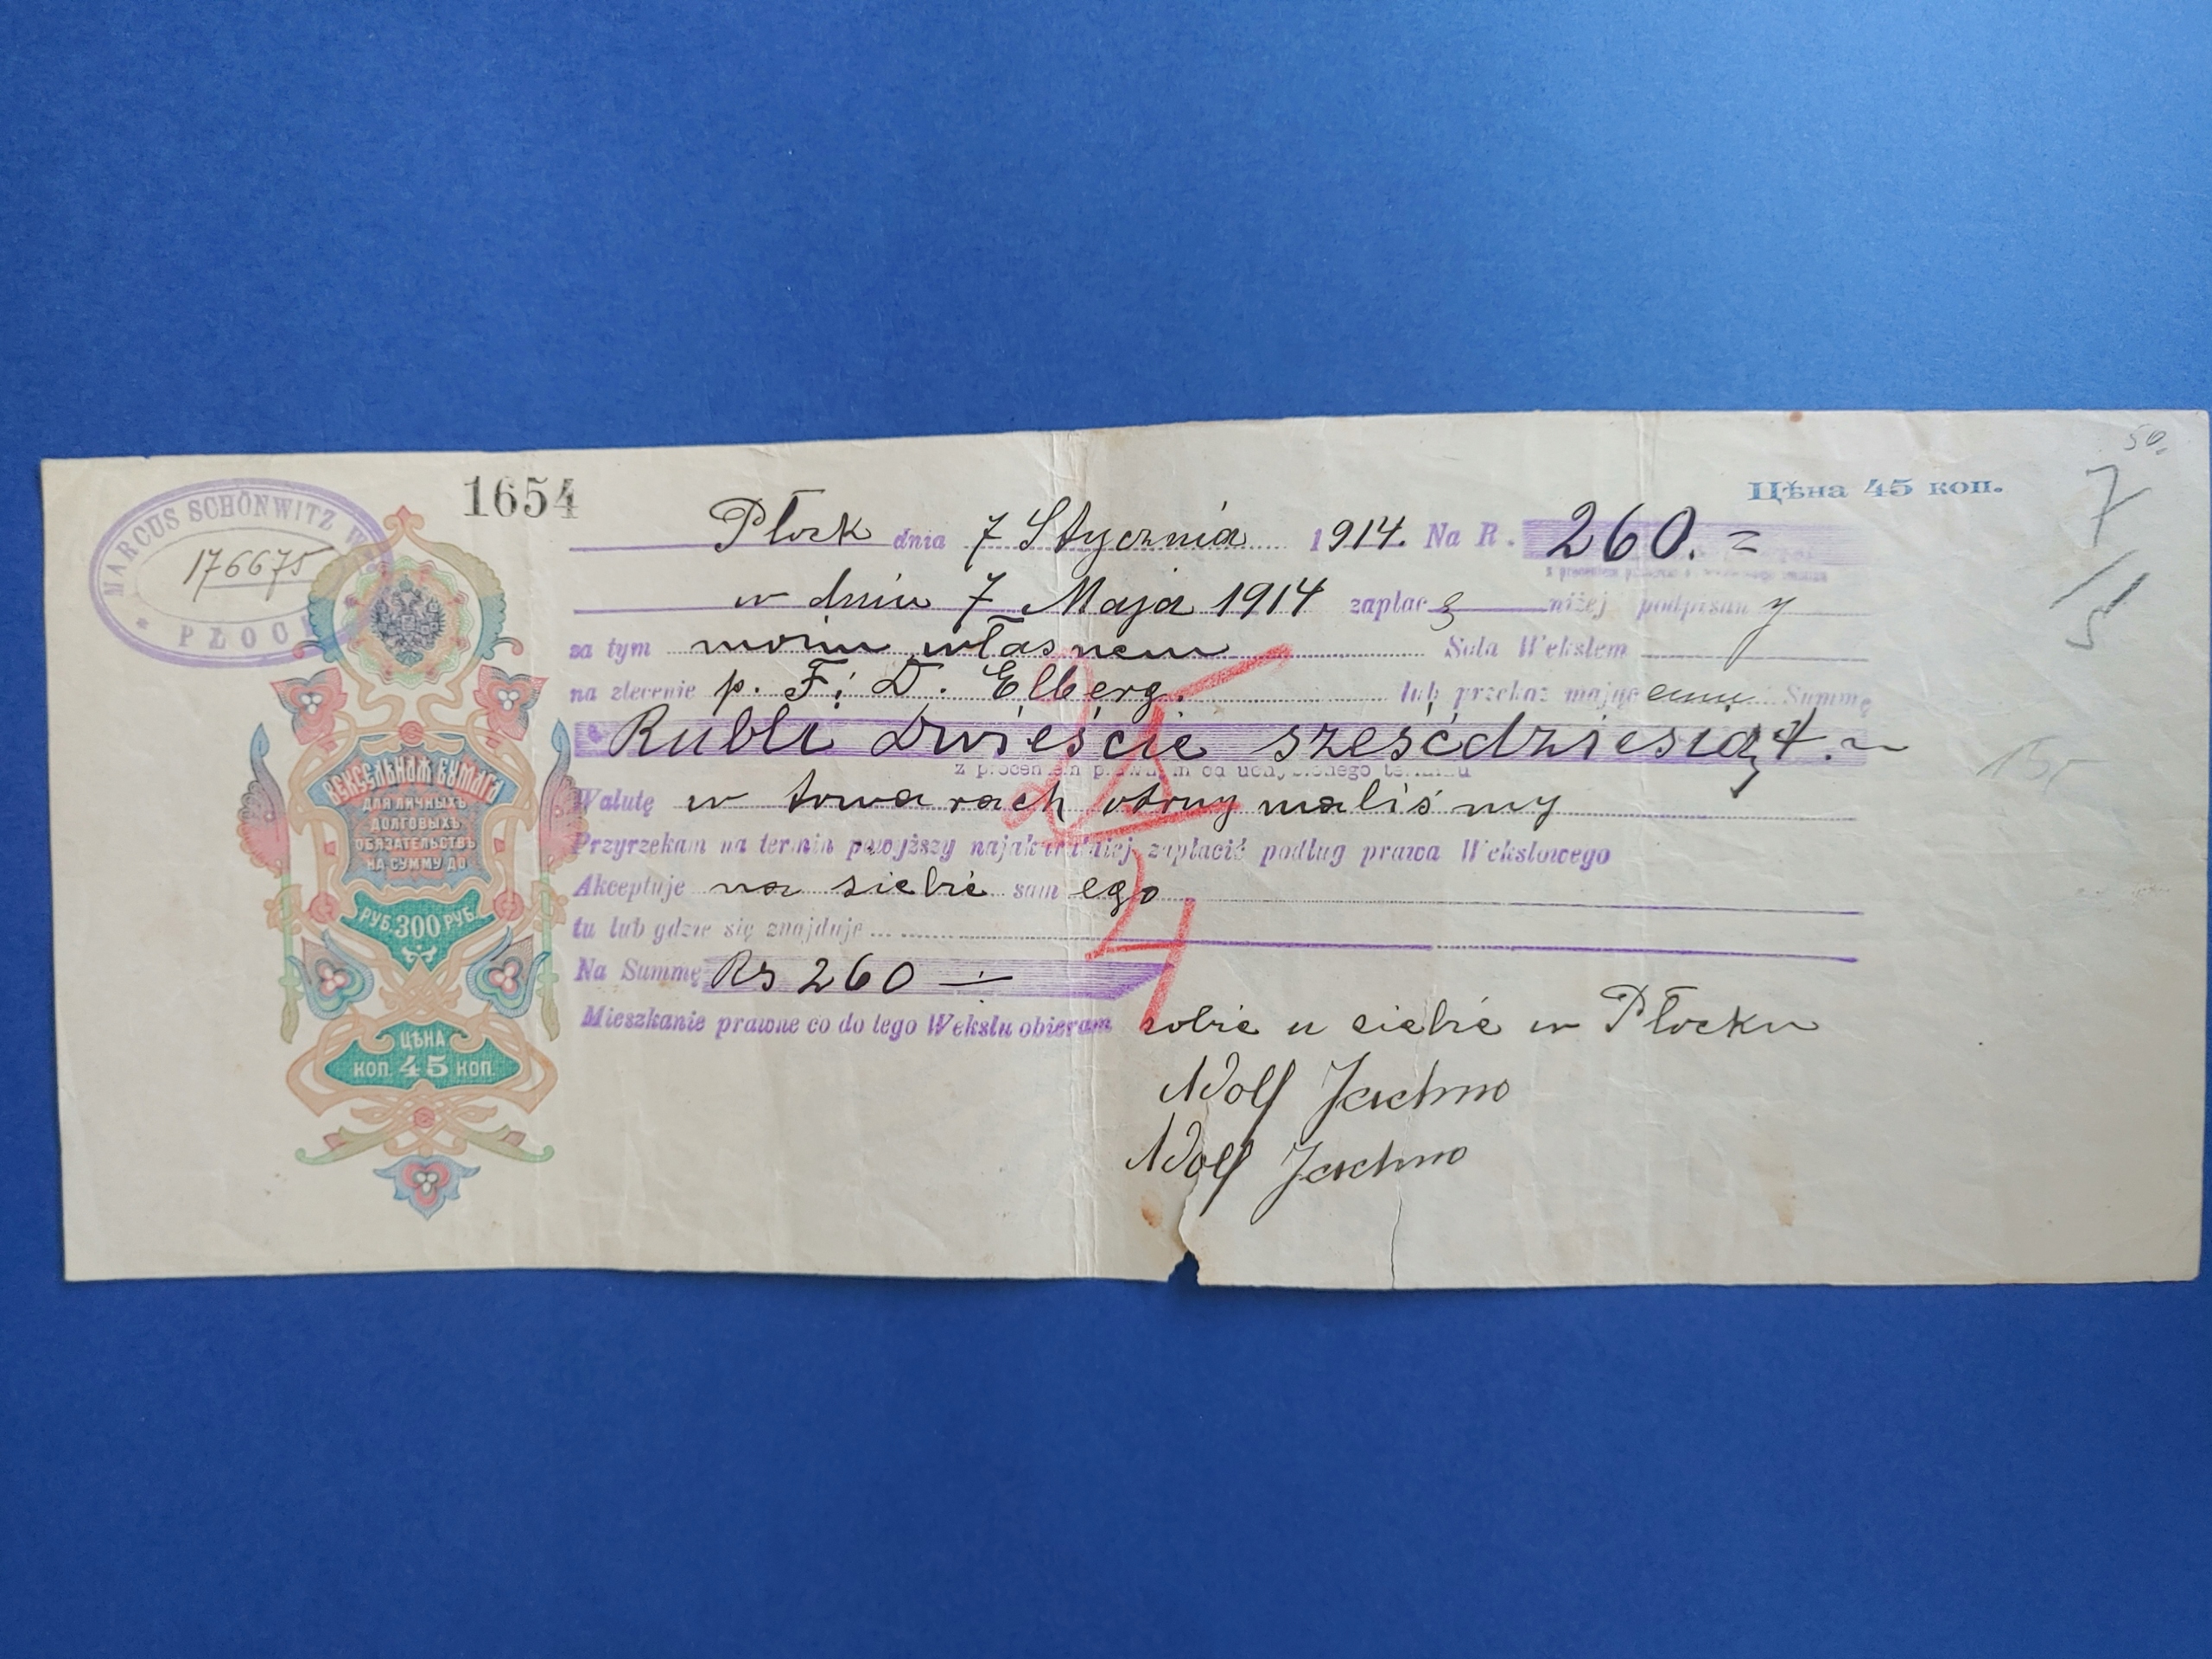 MARCUS SCHÖNWITZ
176675
* PŁOCK
1654
Цѣна 45 коп.
50.
7
Płock dnia 7 Stycznia 1914. Na R. 260.=
w dniu 7 Maja 1914 zapłacę niżej podpisany
za tym moim własnem Sola Wekslem
na zlecenie p. F. i D. Elberg. lub przekaz mającemu Summę
Rubli dwieście sześćdziesiąt.~
z procentem prawnym od uchybionego terminu
Walutę w towarach otrzymaliśmy
Przyrzekam na termin powyższy najakuratniej zapłacić podług prawa Wekslowego
Akceptuje na siebie samego
tu lub gdzie się znajduje
Na Summę Rs 260 —
Mieszkanie prawne co do tego Wekslu obieram sobie u siebie w Płocku
Adolf Jachno
Adolf Jachno
ВЕКСЕЛЬНАЯ БУМАГА
ДЛЯ ЛИЧНЫХЪ
ДОЛГОВЫХЪ
ОБЯЗАТЕЛЬСТВЪ
НА СУММУ ДО
РУБ. 300 РУБ.
ЦѢНА
КОП. 45 КОП.